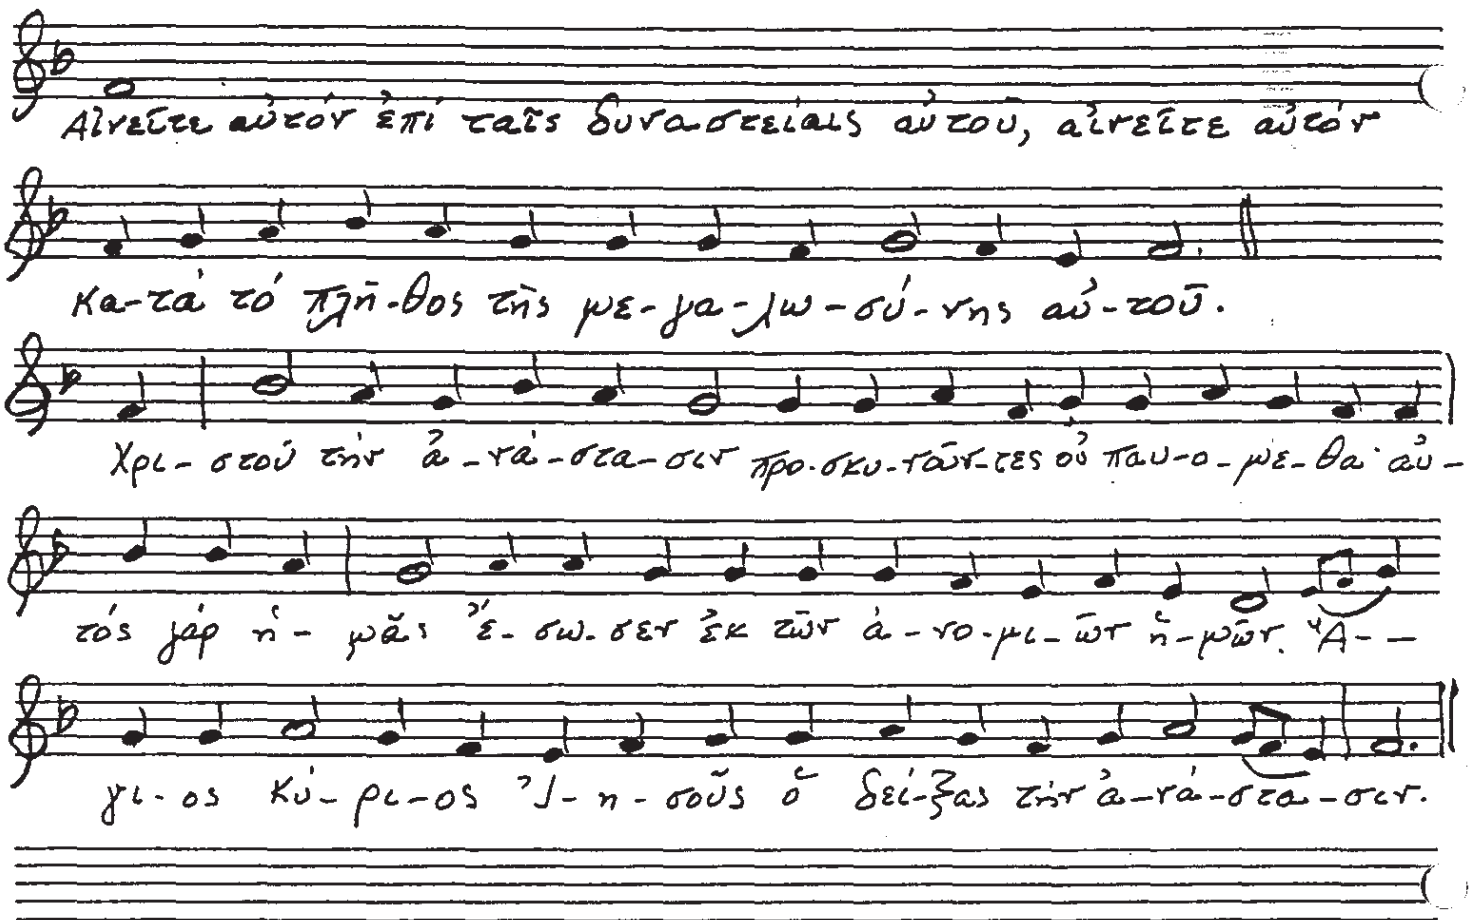 Αἰνεῖτε αὐτόν ἐπί ταῖς δυναστείαις αὐτοῦ, αἰνεῖτε αὐτόν
κα-τά τό πλῆ-θος τῆς με-γα-λω-σύ-νης αὐ-τοῦ.
Χρι-στοῦ τήν ἀ-νά-στα-σιν προ-σκυ-νοῦν-τες οὐ παυ-ό-με-θα· αὐ-
τός γάρ ἡ-μᾶς ἔ-σω-σεν ἐκ τῶν ἀ-νο-μι-ῶν ἡ-μῶν. Ἅ--
γι-ος Κύ-ρι-ος Ἰ-η-σοῦς ὁ δεί-ξας τήν ἀ-νά-στα-σιν.